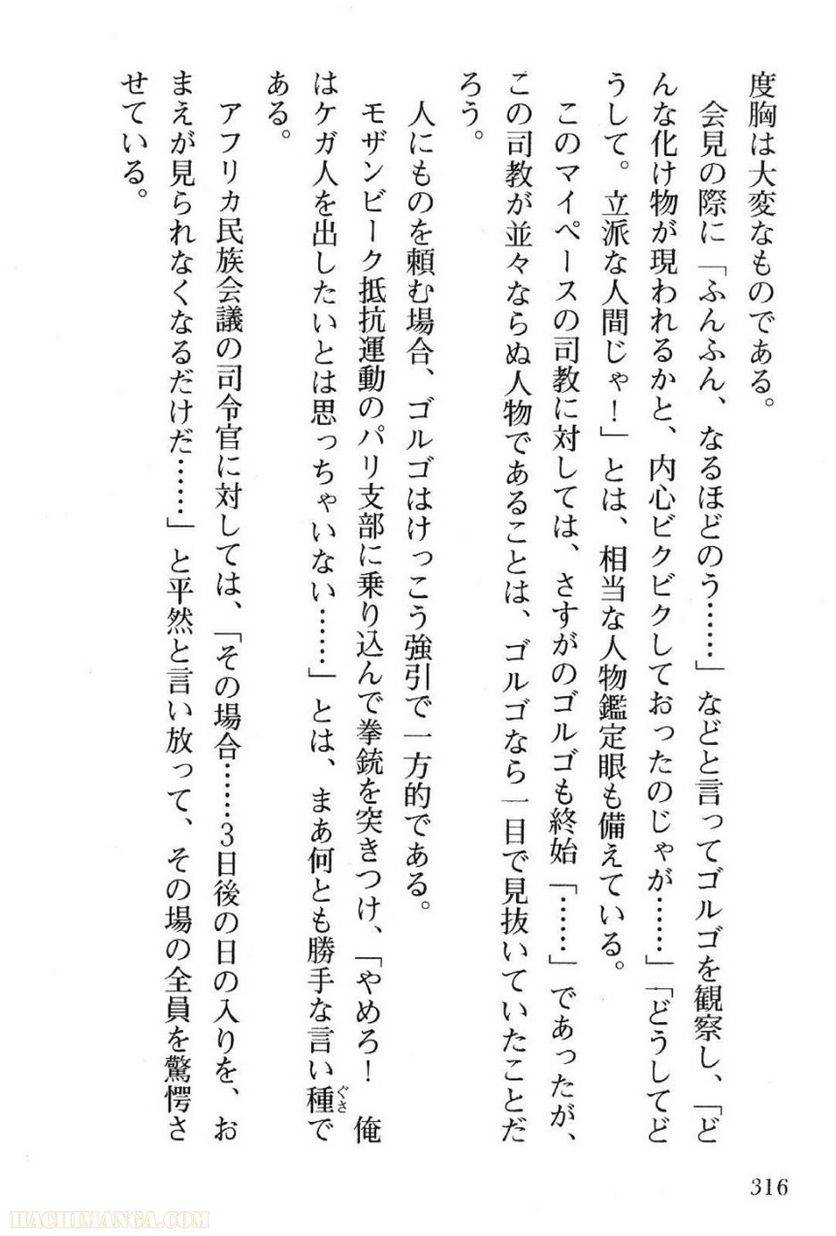 度胸は大変なものである。
会見の際に「ふんふん、なるほどのう……」などと言ってゴルゴを観察し、「ど
んな化け物が現われるかと、内心ビクビクしておったのじゃが……」「どうしてど
うして。立派な人間じゃ！」とは、相当な人物鑑定眼も備えている。
このマイペースの司教に対しては、さすがのゴルゴも終始「……」であったが、
この司教が並々ならぬ人物であることは、ゴルゴなら一目で見抜いていたことだ
ろう。
人にものを頼む場合、ゴルゴはけっこう強引で一方的である。
モザンビーク抵抗運動のパリ支部に乗り込んで拳銃を突きつけ、「やめろ！　俺
はケガ人を出したいとは思っちゃいない……」とは、まあ何とも勝手な言い種で
ぐさ
ある。
アフリカ民族会議の司令官に対しては、「その場合……3日後の日の入りを、お
まえが見られなくなるだけだ……」と平然と言い放って、その場の全員を驚愕さ
せている。
316
HACHIMANGA.COM